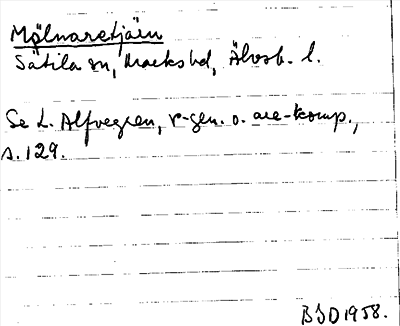 Mölnaretjärn
Sätila sn, Marks hd, Älvsb. l.
Se L. Alfvegren, r-gen. o. are-komp.,
s. 129.
BJD 1958.